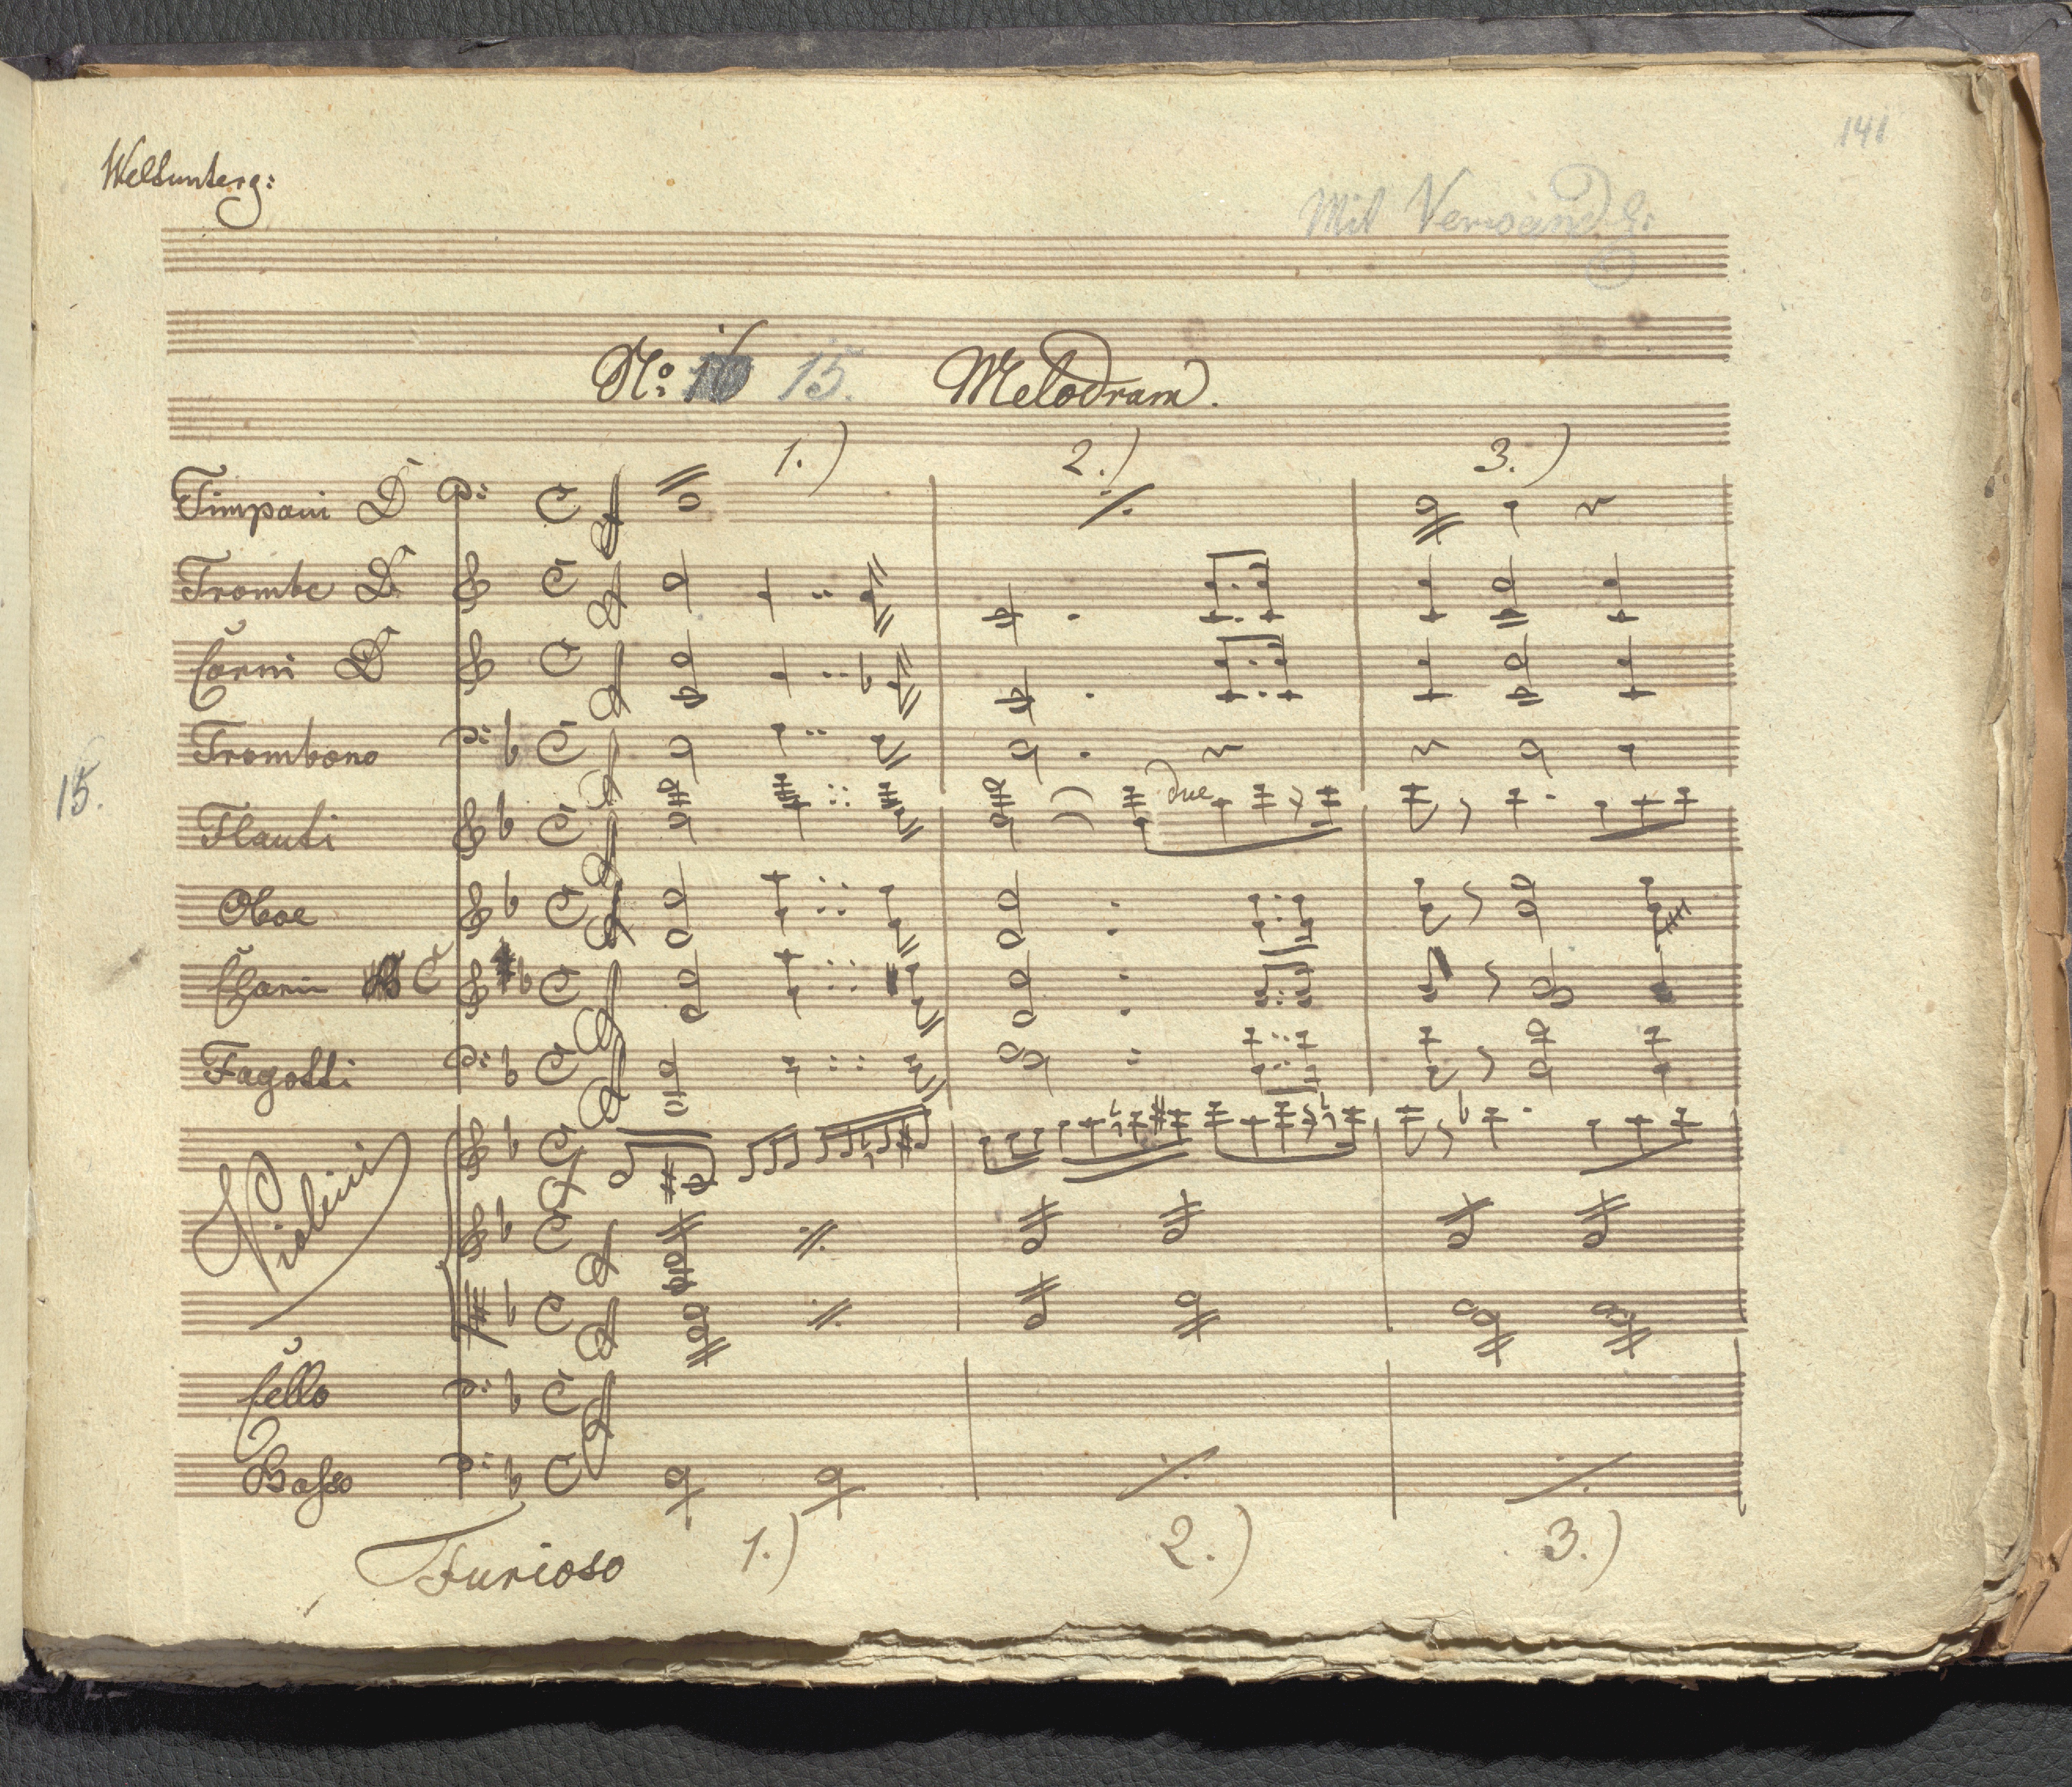 141
Weltunterg:
Mit Verwandl:
No: 16 15. Melodram.
1.) 2.) 3.)
Timpani D
Trombe D
Corni D
Trombono
15.
Flauti
due
Oboe
Clarin C
Fagotti
Violini
Cello
Basso
Furioso 1.) 2.) 3.)